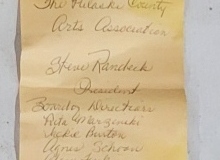 The Pulaski County
Arts Association
Steve Randick
President
Board of Directors
Rita Marzinski
Jackie Burton
Agnes Schoon